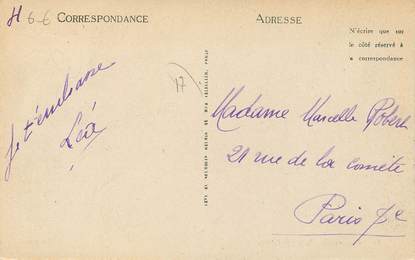 H 6-6
CORRESPONDANCE
Je t'embrasse
Léo
17
ADRESSE
N'écrire que sur
le côté réservé à
la correspondance
Madame Marcelle Robert
21 rue de la comète
Paris 7e